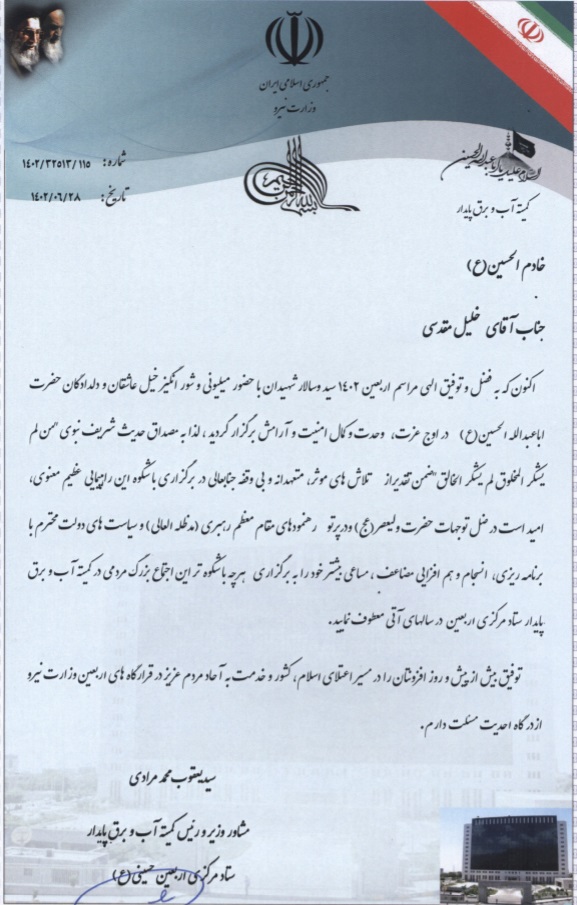 جمهوری اسلامی ایران
وزارت نیرو
شماره: ۱۴۰۲/۳۲۵۱۳/۱۱۵
تاریخ: ۱۴۰۲/۰۶/۲۸
بسم الله الرحمن الرحیم
السلام علیک یا اباعبدالله الحسین
کمیته آب و برق پایدار
خادم الحسین(ع)
جناب آقای خلیل مقدسی
اکنون که به فضل و توفیق الهی مراسم اربعین ۱۴۰۲ سید و سالار شهیدان با حضور میلیونی و شور انگیز خیل عاشقان و دلدادگان حضرت
اباعبدالله الحسین(ع) در اوج عزت، وحدت و کمال امنیت و آرامش برگزار گردید، لذا به مصداق حدیث شریف نبوی من لم
یشکر المخلوق لم یشکر الخالق ضمن تقدیر از تلاش های موثر، متعهدانه و بی وقفه جنابعالی در برگزاری باشکوه این راهپیمایی عظیم معنوی،
امید است در ظل توجهات حضرت ولیعصر(عج) و در پرتو رهنمودهای مقام معظم رهبری (مدظله العالی) و سیاست های دولت محترم با
برنامه ریزی، انسجام و هم افزایی مضاعف، مساعی بیشتر خود را به برگزاری هرچه باشکوه تر این اجتماع بزرگ مردمی در کمیته آب و برق
پایدار ستاد مرکزی اربعین در سالهای آتی معطوف نمایید.
توفیق بیش از پیش و روز افزونتان را در مسیر اعتلای اسلام، کشور و خدمت به آحاد مردم عزیز در قرارگاه های اربعین وزارت نیرو
از درگاه احدیت مسئلت دارم.
سید یعقوب محمد مرادی
مشاور وزیر و رئیس کمیته آب و برق پایدار
ستاد مرکزی اربعین حسینی(ع)